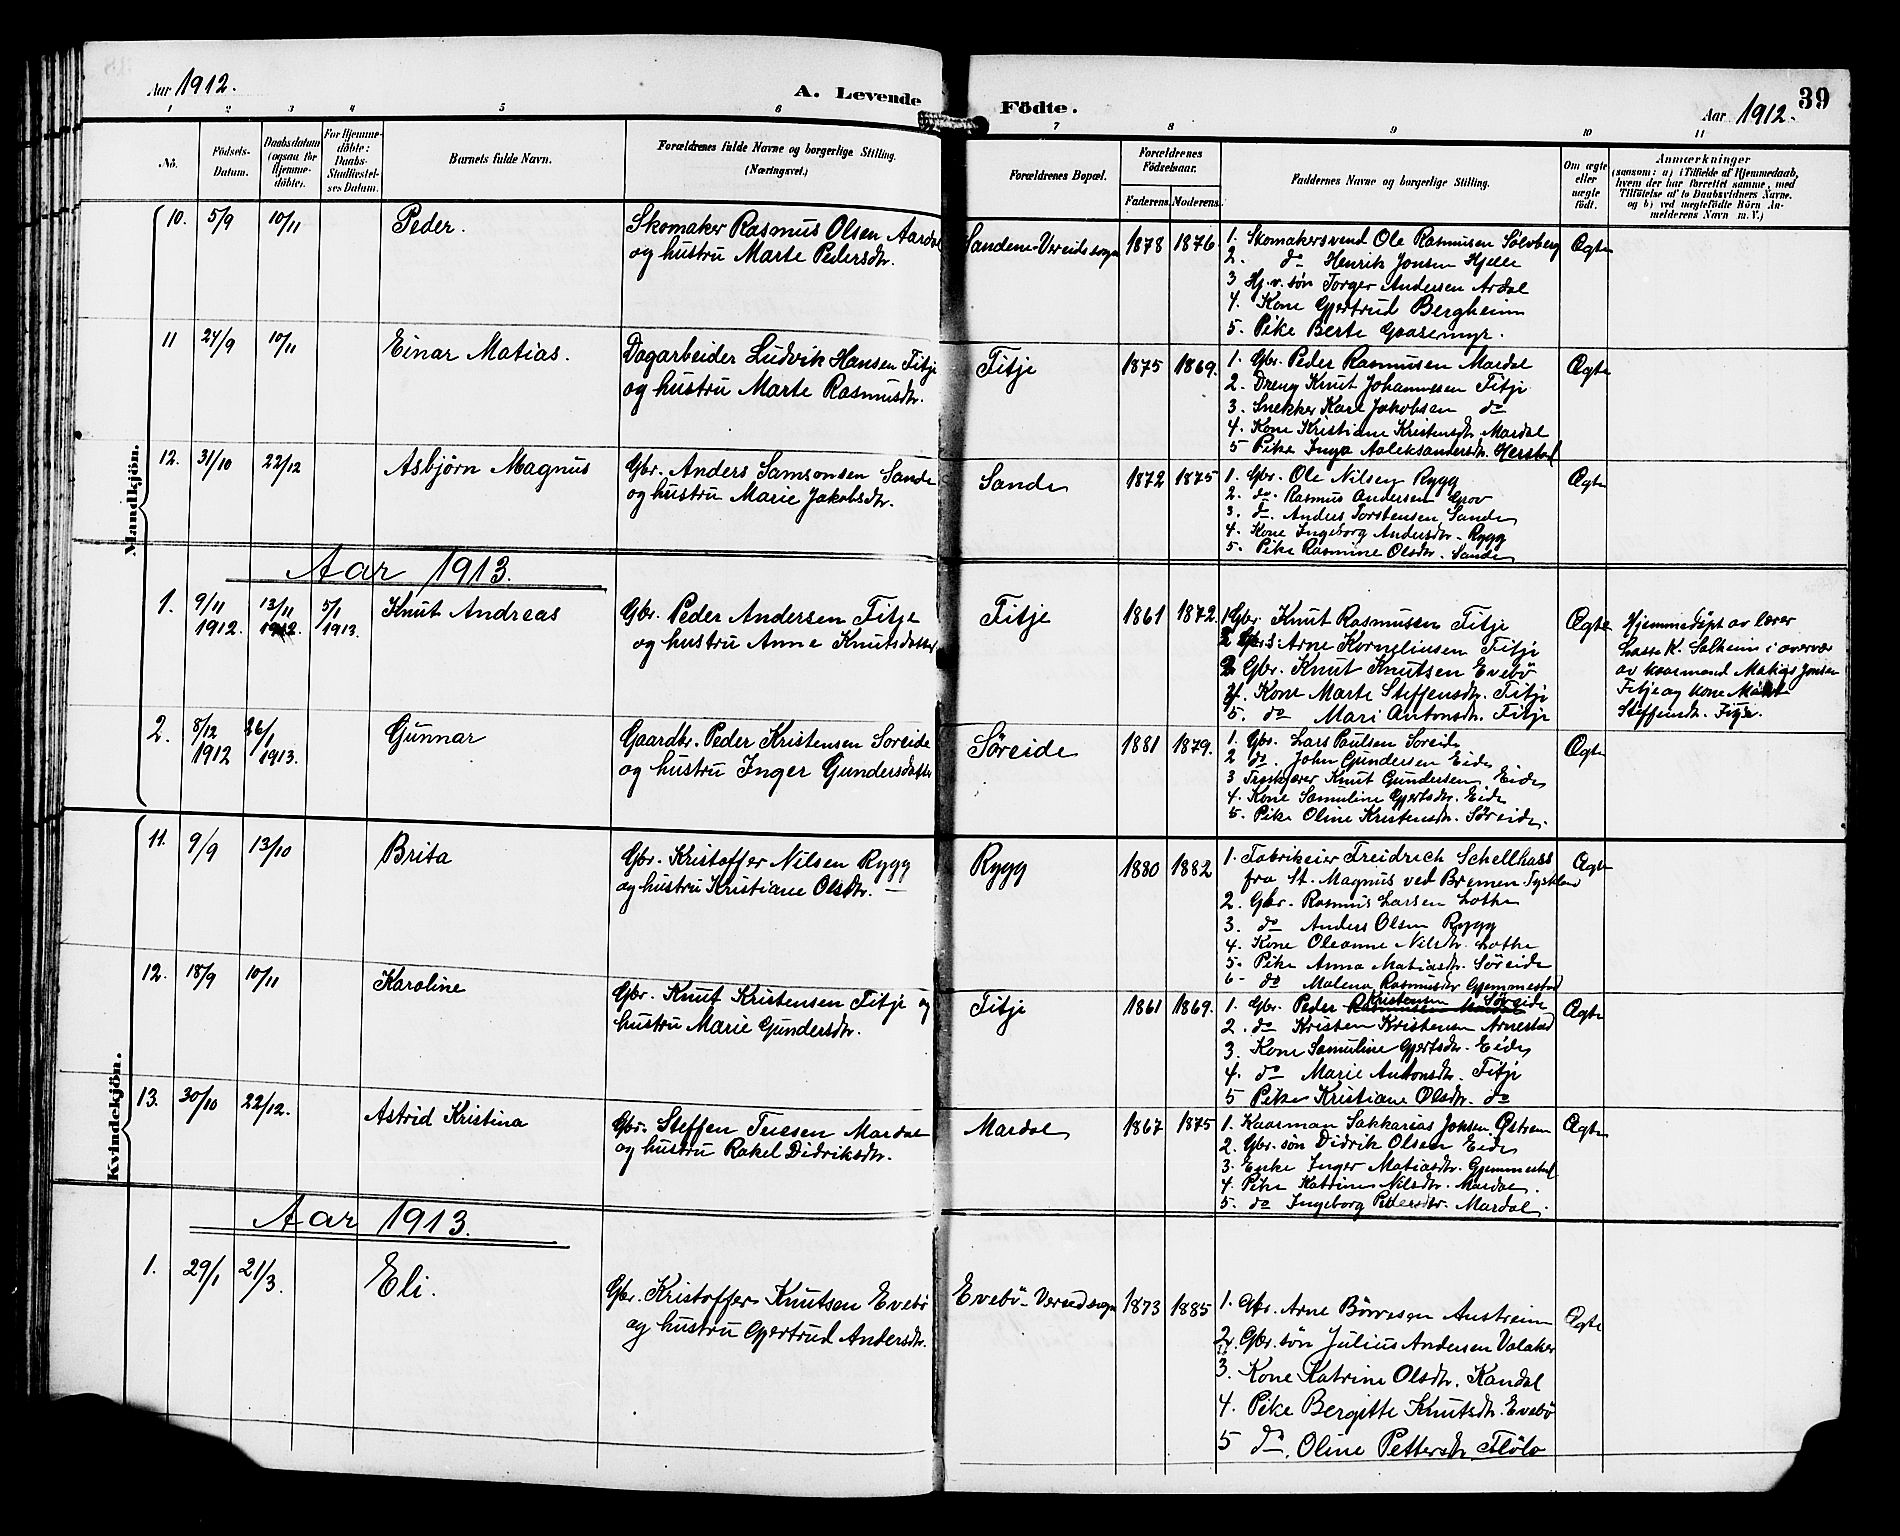 Aar 1912.
A. Levende Födte.
Aar 1912. 39
1 2 3 4 5 6 7 8 9 10 11
No.
Födsels-Datum.
Daabsdatum (ogsaa for Hjemme-döbte).
For Hjemme-döbte: Daabs-Stadfæstel-ses Datum.
Barnets fulde Navn.
Forældrenes fulde Navne og borgerlige Stilling. (Næringsvei.)
Forældrenes Bopæl.
Forældrenes Födselsaar.
Faderens. Moderens.
Faddernes Navne og borgerlige Stilling.
Om ægte eller uægte födt.
Anmærkninger
(saasom: a) i Tilfælde af Hjemmedaab,
hvem der har forrettet samme, med
Tilföielse af to Daabsvidners Navne.
og b) ved uegtefödte Börn An-
melderens Navn m. V.)
Mandkjön.
10. 5/9 10/11 Peder.
Skomaker Rasmus Olsen Aardal
og hustru Marte Pedersdtr.
Sandene-Vereidesogn 1878 1876
1. Skomakersvend Ole Rasmusen Solvberg
2. do Henrik Jonsen Hjelle
3 Hj.v. søn Torger Andersen Ardal
4. Kone Gjertrud Bergheim
5. Pike Berte Gaasemyr.
Ægte
11 24/9 10/11 Einar Matias.
Dagarbeider Ludvik Hansen Fitje
og hustru Marte Rasmusdtr.
Fitje 1875 1869.
1. Gbr. Peder Rasmusen Mardal
2. Dreng Knut Johannesen Fitje
3. Snekker Karl Jakobsen do
4. Kone Kristiane Kristensdtr. Mardal
5 Pike Inga Aaleksandersdtr. Herstad
Ægte
12. 31/10 22/12 Asbjørn Magnus
Gbr. Anders Samsonsen Sande
og hustru Marie Jakobsdtr.
Sande 1872 1875
1. Gbr. Ole Nilsen Rygg
2. do. Rasmus Andersen Grov
3. do. Anders Torstensen Sande
4. Kone Ingeborg Andersdtr. Rygg
5. Pike Rasmine Olsdtr. Sande
Ægte
Aar 1913.
1. 9/11 1912. 13/11 1912. 5/1 1913. Knut Andreas
Gbr. Peder Andersen Fitje
og hustru Anne Knutsdatter
Fitje 1861 1872
1 Gbr. Knut Rasmusen Fitje
2 Gbrs. Arne Korneliusen Fitje
3 Gbr. Knut Knutsen Evebö
4. Kone Marte Steffensdtr. Fitje
5. do Mari Antonsdtr. Fitje
Ægte
Hjemmedöpt av lærer
Lasse K. Solheim i overvær
av kaarmand Matias Jonsen
Fitje og kone Marte
Steffensdtr. Fitje.
2. 8/12 1912 26/1 1913. Gunnar
Gaardbr. Peder Kristensen Soreide
og hustru Inger Gundersdatter
Søreide 1881 1879.
1. Gbr. Lars Paulsen Soreide
2 do. John Gundersen Eide
3 Knut Gundersen Eide
4. Kone Samuline Gjertsdtr. Eide
5. Pike Oline Kristensdtr. Søreide.
Ægte
Kvindekjön.
11. 9/9 13/10 Brita
Gbr. Kristoffer Nilsen Rygg
og hustru Kristiane Olsdtr.
Rygg 1880 1882
1. Fabrikeier Freidrich Schellhass
fra St. Magnus ved Bremen Tyskland
2. Gbr. Rasmus Larsen Lothe
3. do Anders Olsen Rygg
4. Kone Oleanne Nilsdtr. Lothe
5. Pike Anna Matiasdtr. Søreide
6- do Malena Rasmusdtr Gjemmestad
Ægte
12. 18/9 10/11 Karoline
Gbr. Knut Kristensen Fitje og
hustru Marie Gundersdtr.
Fitje 1861 1869.
1. Gbr. Peder Rasmusen Mardal Kristensen Søreide
2. do Kristen Kristensen Arnestad
3. Kone Samuline Gjertsdtr. Eide
4. do Marie Antonsdtr. Fitje
5 Pike Kristiane Olsdtr. do
Ægte
13. 30/10 22/12. Astrid Kristina
Gbr. Steffen Tuesen Mardal
og hustru Rakel Didriksdtr.
Mardal 1867 1875
1. Kaarman Sakkarias Jonsen Østrem
2. Gbr. søn Didrik Olsen Eide
3. Enke Inger Matiasdtr. Gjemmestad
4. Pike Katrine Nilsdtr. Mardal.
5. do Ingeborg Pedersdtr. Mardal.
Ægte
Aar 1913.
1. 29/1 21/3. Eli.
Gbr. Kristoffer Knutsen Evebö
og hustru Gjertrud Andersdtr.
Evebö- Vereidsogn 1873 1885
1. Gbr. Arne Börresen Austreim
2. Gbr. søn Julius Andersen Valaker
3. Kone Katrine Olsdtr. Kandal
4. Pike Bergitte Knutsdtr. Evebö
5 do. Oline Pettersdtr Flölo
Ægte